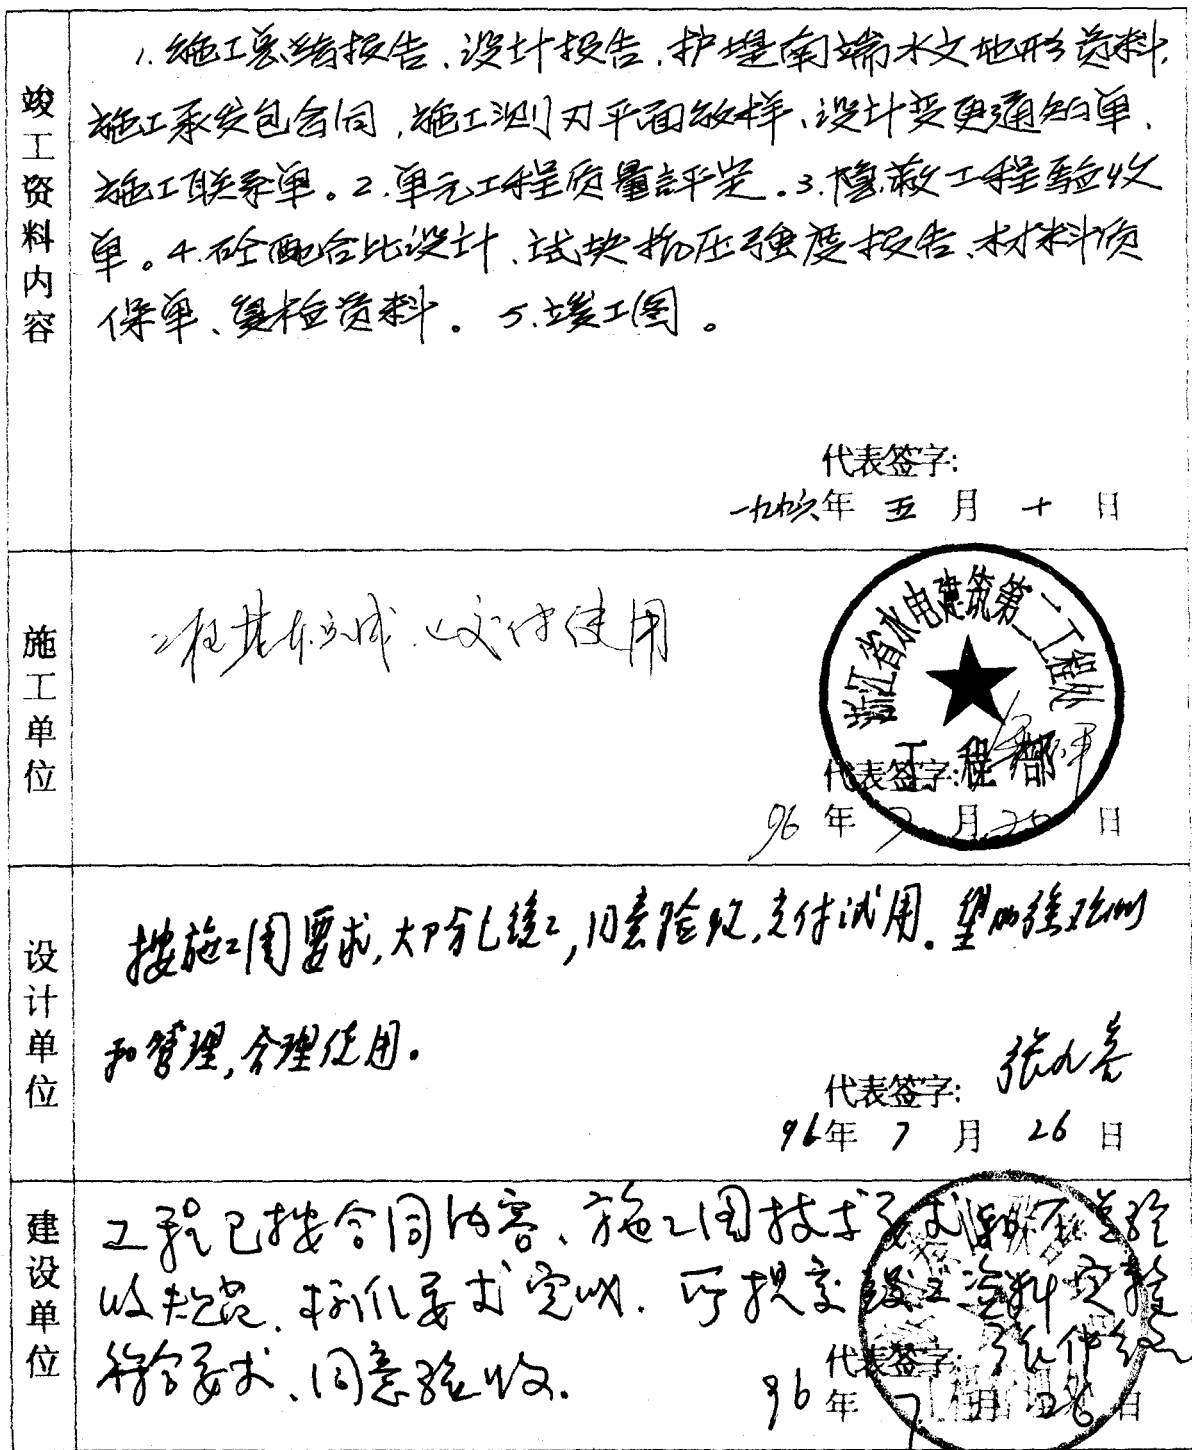 竣工资料内容
1.施工总结报告、设计报告、护堤南端水文地形资料、
施工承发包合同、施工测力平面放样、设计变更通知单、
施工联系单。2.单元工程质量評定。3.隐蔽工程验收
单。4.砼配合比设计、试块抗压强度报告、材料质
保单、复检资料。5.竣工图。
代表签字:
一九九六年 五 月 十 日
施工单位
工程基本完成、已交付使用
浙江省水电建筑第二工程处
工程部
代表签字:
96 年 7 月 20 日
设计单位
按施工图要求,大部分已竣工,同意验收,交付试用。望加强观测
和管理,合理使用。
代表签字:
96年 7 月 26 日
建设单位
工程已按合同内容、施工图技术要求
收规范、标化要求完成.所提交竣工资料完整
符合要求、同意验收.
代表签字:
96 年 7 月 26 日